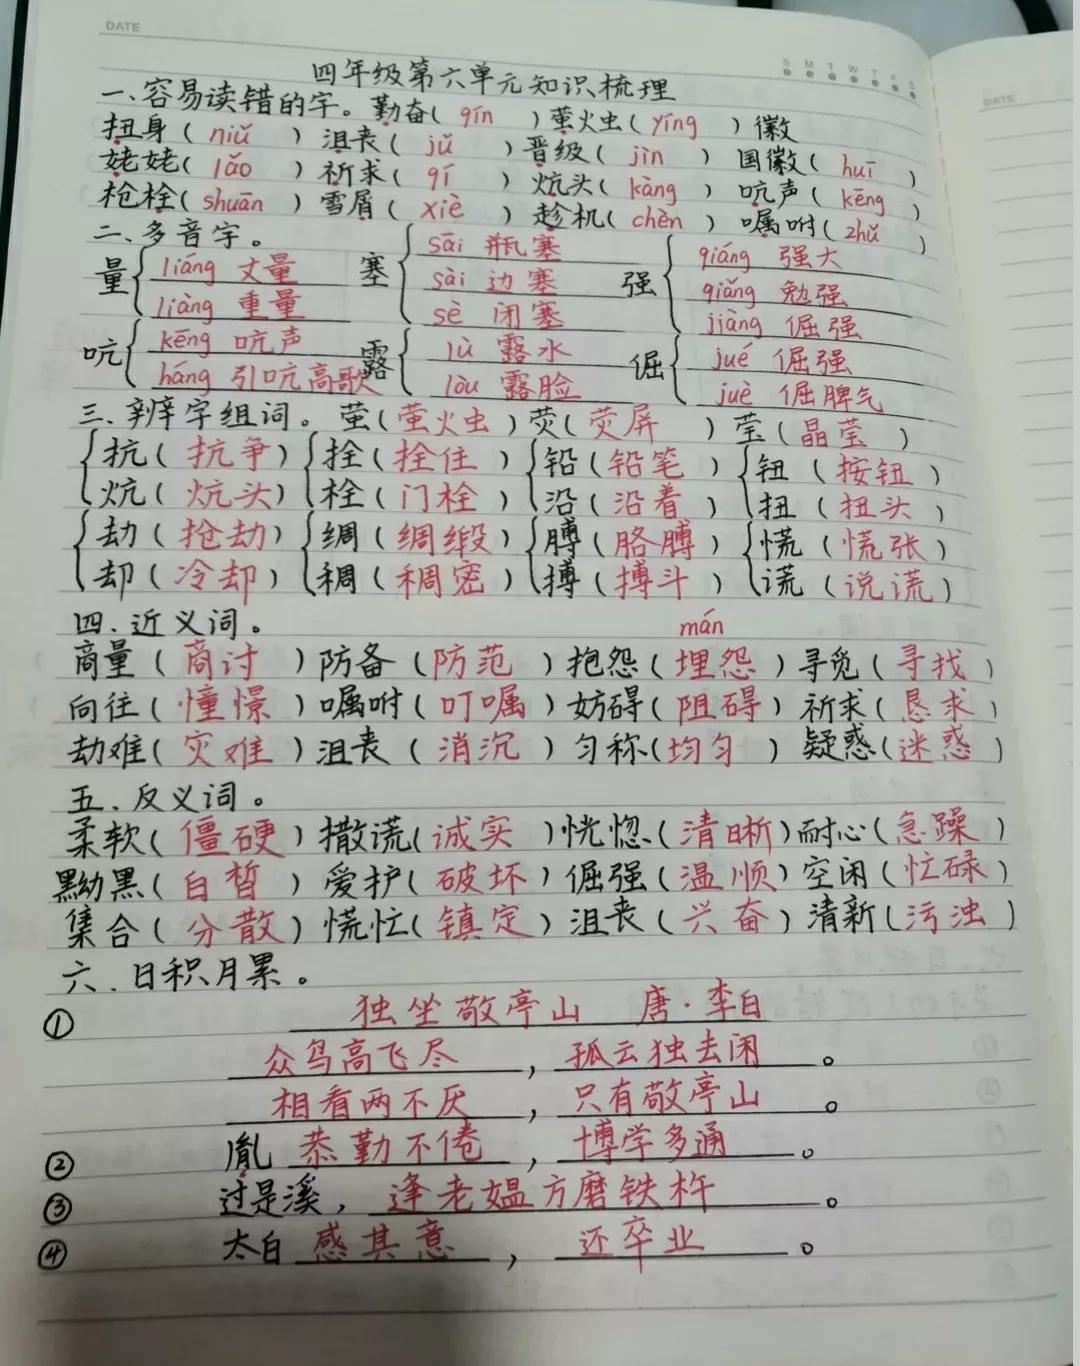 DATE
S M T W T F S
四年级第六单元知识梳理
一、容易读错的字。勤奋(qín)萤火虫(yíng)徽
扭身(niǔ)沮丧(jǔ)晋级(jìn)国徽(huī)
姥姥(lǎo)祈求(qí)炕头(kàng)吭声(kēng)
枪栓(shuān)雪屑(xiè)趁机(chèn)嘱咐(zhǔ)
二、多音字。
量{liáng 丈量 塞{sāi 瓶塞 强{qiáng 强大
liàng 重量 sài 边塞 qiǎng 勉强
sè 闭塞 jiàng 倔强
吭{kēng 吭声 露{lù 露水 倔{jué 倔强
háng 引吭高歌 lòu 露脸 juè 倔脾气
三、辨字组词。萤(萤火虫)荧(荧屏)莹(晶莹)
{抗(抗争){拴(拴住){铅(铅笔){钮(按钮)
炕(炕头) 栓(门栓) 沿(沿着) 扭(扭头)
{劫(抢劫){绸(绸缎){膊(胳膊){慌(慌张)
却(冷却) 稠(稠密) 搏(搏斗) 谎(说谎)
四、近义词。 mán
商量(商讨)防备(防范)抱怨(埋怨)寻觅(寻找)
向往(憧憬)嘱咐(叮嘱)妨碍(阻碍)祈求(恳求)
劫难(灾难)沮丧(消沉)匀称(均匀)疑惑(迷惑)
五、反义词。
柔软(僵硬)撒谎(诚实)恍惚(清晰)耐心(急躁)
黝黑(白皙)爱护(破坏)倔强(温顺)空闲(忙碌)
集合(分散)慌忙(镇定)沮丧(兴奋)清新(污浊)
六、日积月累。
① 独坐敬亭山 唐·李白
众鸟高飞尽,孤云独去闲。
相看两不厌,只有敬亭山。
② 胤恭勤不倦,博学多通。
③ 过是溪,逢老媪方磨铁杵。
④ 太白感其意,还卒业。
DATE